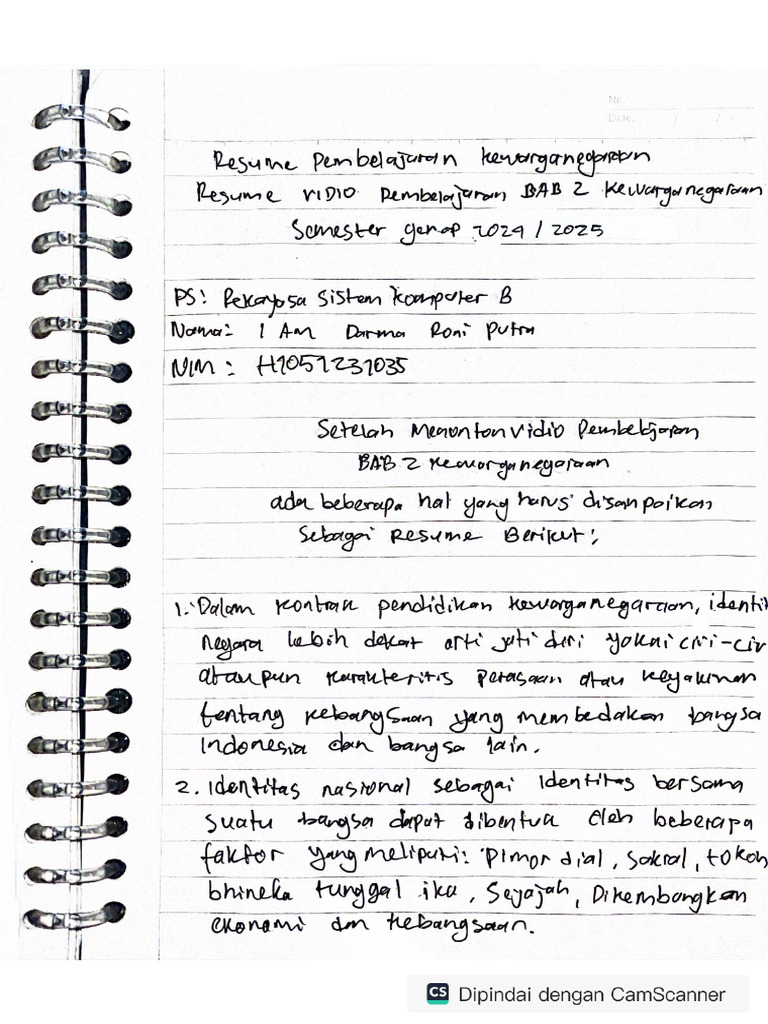 No
Date. / /
Resume Pembelajaran kewarganegaraan
Resume VIDIO Pembelajaran BAB 2 Kewarganegaraan
Semester genap 2024 / 2025
PS: Rekayasa Sistem Komputer B
Nama: I Am Darma Roni Putra
NIM : H1051231035
Setelah Menonton Vidio Pembelajaran
BAB 2 kewarganegaraan
ada beberapa hal yang harus disampaikan
Sebagai Resume Berikut :
1. Dalam kontrak pendidikan kewarganegaraan, identit
negara lebih dekat arti jati diri yakni ciri-cir
ataupun karakteritis perasaan atau keyakinan
tentang kebangsaan yang membedakan bangsa
Indonesia dan bangsa lain.
2. Identitas nasional sebagai Identitas bersama
suatu bangsa dapat dibentuk oleh beberapa
faktor yang meliputi: Pimordial, Sakral, tokoh
bhineka tunggal ika, Sejajah, Dikembangkan
ekonomi dan kebangsaan.
CS Dipindai dengan CamScanner